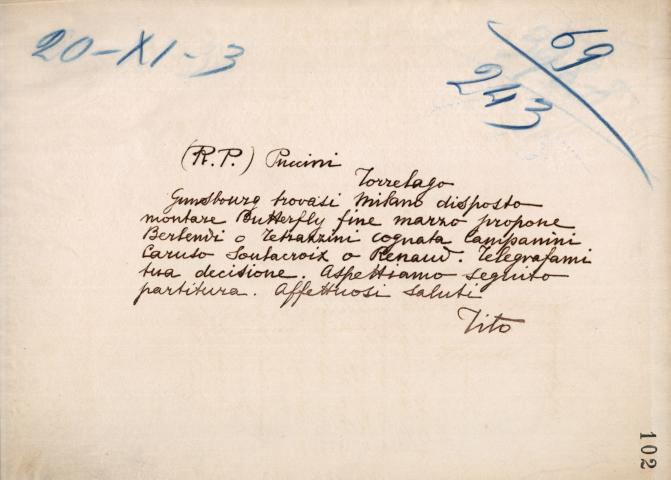 20-XI-3
69
243
(R.P.) Puccini
Torrelago
Gunsbourg trovasi Milano disposto
montare Butterfly fine marzo propone
Berlendi o Tetrazzini cognata Campanini
Caruso Soulacroix o Renaud. Telegrafami
tua decisione. Aspettiamo seguito
partitura. Affettuosi saluti
Tito
102